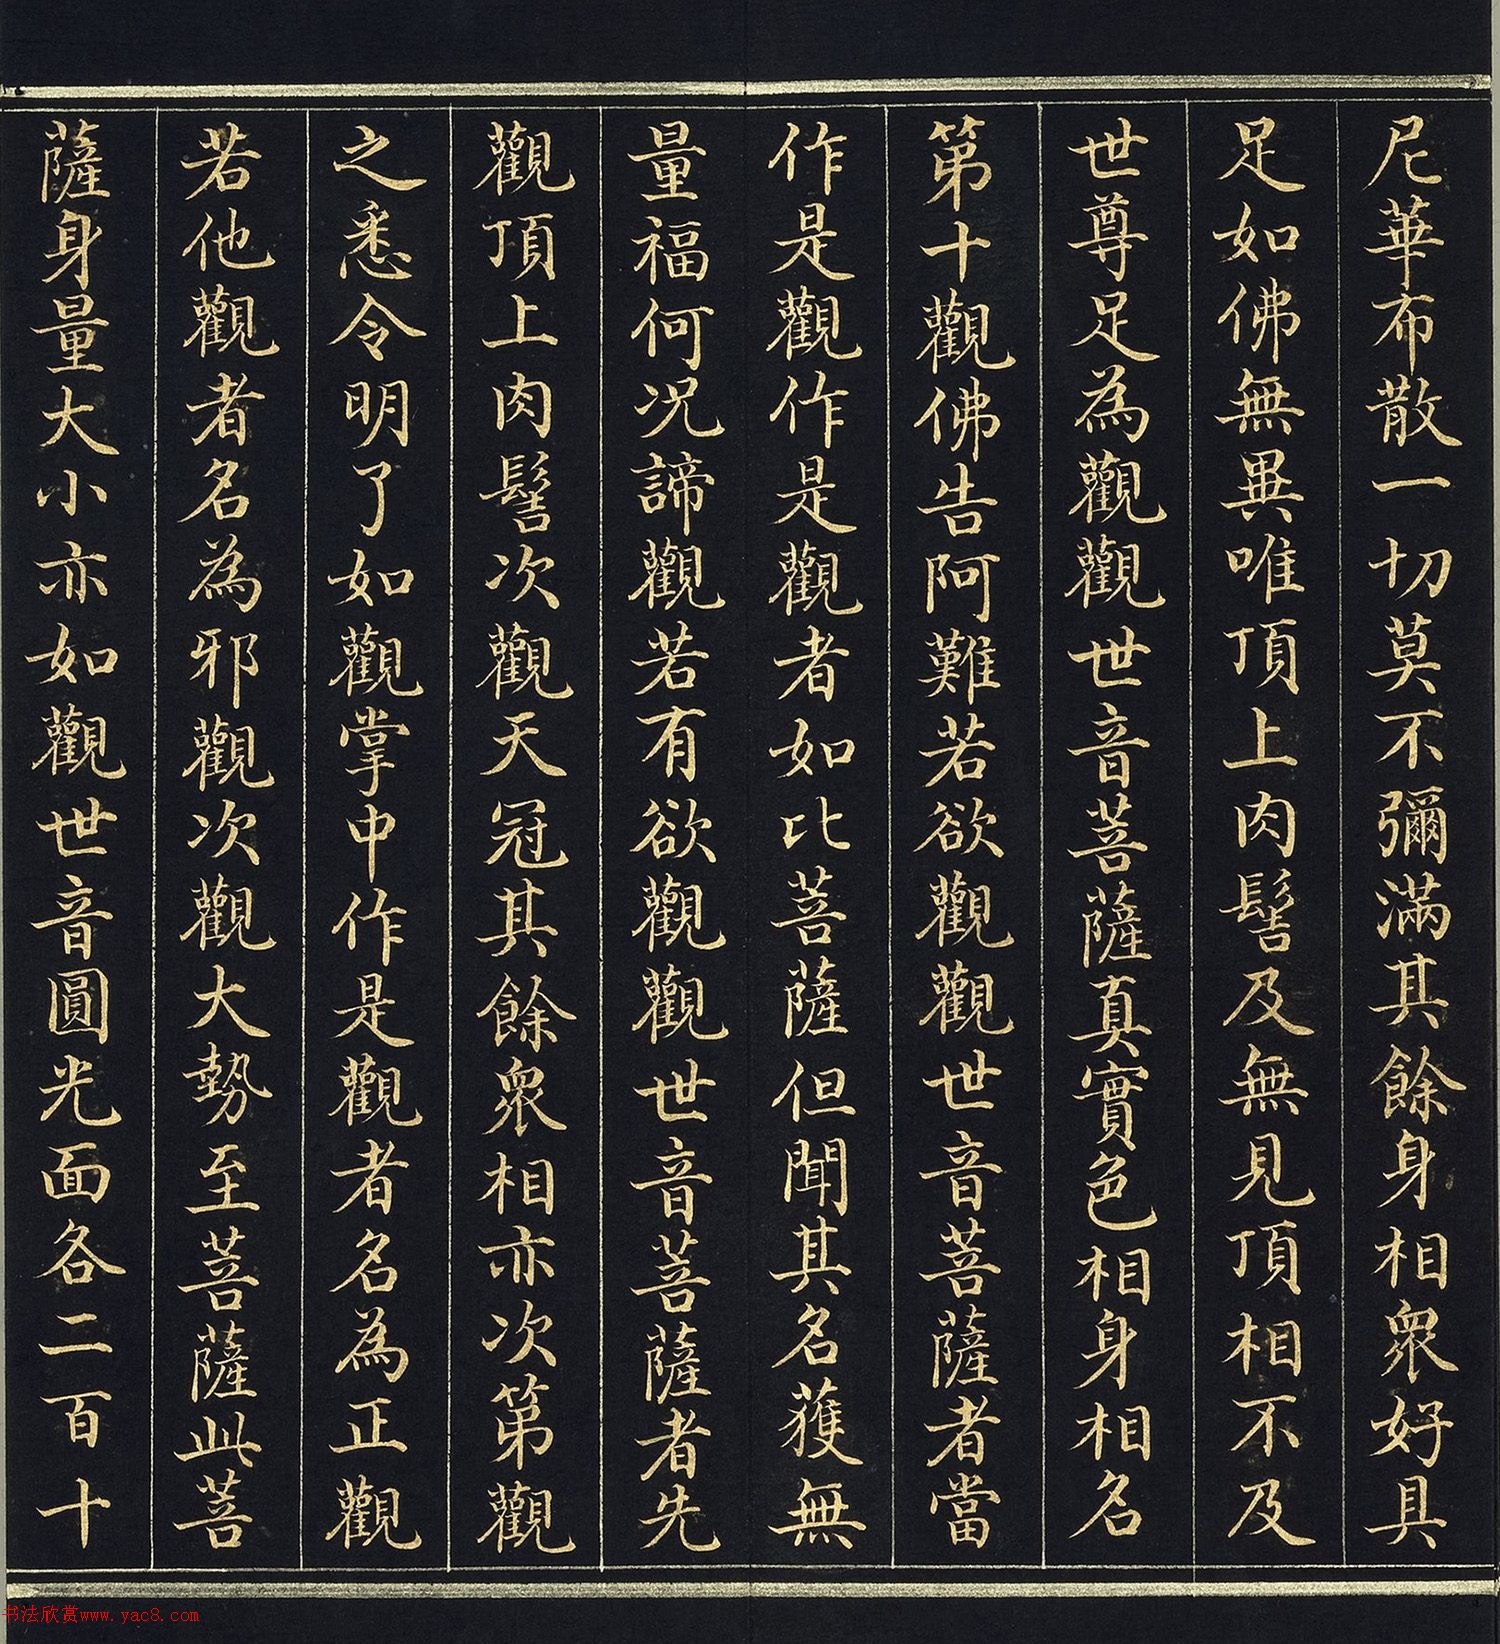 尼華布散一切莫不彌滿其餘身相衆好具
足如佛無異唯頂上肉髻及無見頂相不及
世尊足為觀觀世音菩薩真實色相身相名
第十觀佛告阿難若欲觀觀世音菩薩者當
作是觀作是觀者如比菩薩但聞其名獲無
量福何况諦觀若有欲觀觀世音菩薩者先
觀頂上肉髻次觀天冠其餘衆相亦次第觀
之悉令明了如觀掌中作是觀者名為正觀
若他觀者名為邪觀次觀大勢至菩薩此菩
薩身量大小亦如觀世音圓光面各二百十
书法欣赏www.yac8.com